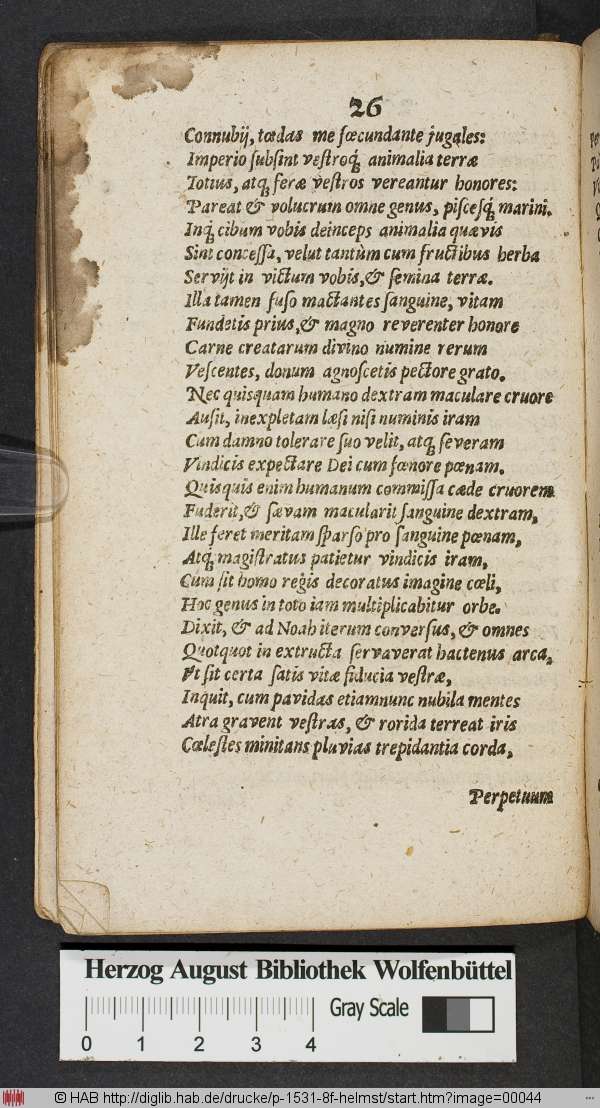 26
Connubij, tœdas me fœcundante jugales:
Imperio ſubſint veſtroq́; animalia terræ
Totius, atq; feræ veſtros vereantur honores:
Pareat & volucrum omne genus, piſceſq́; marini.
Inq; cibum vobis deinceps animalia quævis
Sint conceſſa, velut tantùm cum fructibus herba
Servijt in victum vobis, & ſemina terræ.
Illa tamen fuſo mactantes ſanguine, vitam
Fundetis prius, & magno reverenter honore
Carne creatarum divino numine rerum
Veſcentes, donum agnoſcetis pectore grato.
Nec quisquam humano dextram maculare cruore
Auſit, inexpletam læſi niſi numinis iram
Cum damno tolerare ſuo velit, atq; ſeveram
Vindicis expectare Dei cum fœnore pœnam.
Quisquis enim humanum commiſſa cæde cruorem
Fuderit, & ſævam macularit ſanguine dextram,
Ille feret meritam ſparſo pro ſanguine pœnam,
Atq; magiſtratus patietur vindicis iram,
Cum ſit homo regis decoratus imagine cœli,
Hoc genus in toto iam multiplicabitur orbe.
Dixit, & ad Noah iterum converſus, & omnes
Quotquot in extructa ſervaverat hactenus arca,
Vt ſit certa ſatis vitæ fiducia veſtræ,
Inquit, cum pavidas etiamnunc nubila mentes
Atra gravent veſtras, & rorida terreat iris
Cœleſtes minitans pluvias trepidantia corda,
Perpetuum
Herzog August Bibliothek Wolfenbüttel
Gray Scale
0 1 2 3 4
© HAB http://diglib.hab.de/drucke/p-1531-8f-helmst/start.htm?image=00044